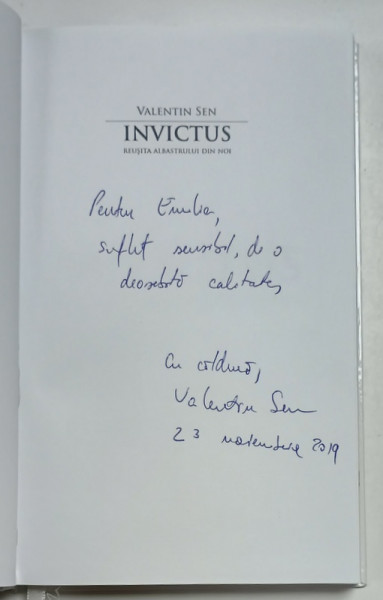 VALENTIN SEN
INVICTUS
REUȘITA ALBASTRULUI DIN NOI
Pentru Emilia,
suflet sensibil, de o
deosebită calitate,
Cu căldură,
Valentin Sen
23 noiembrie 2019